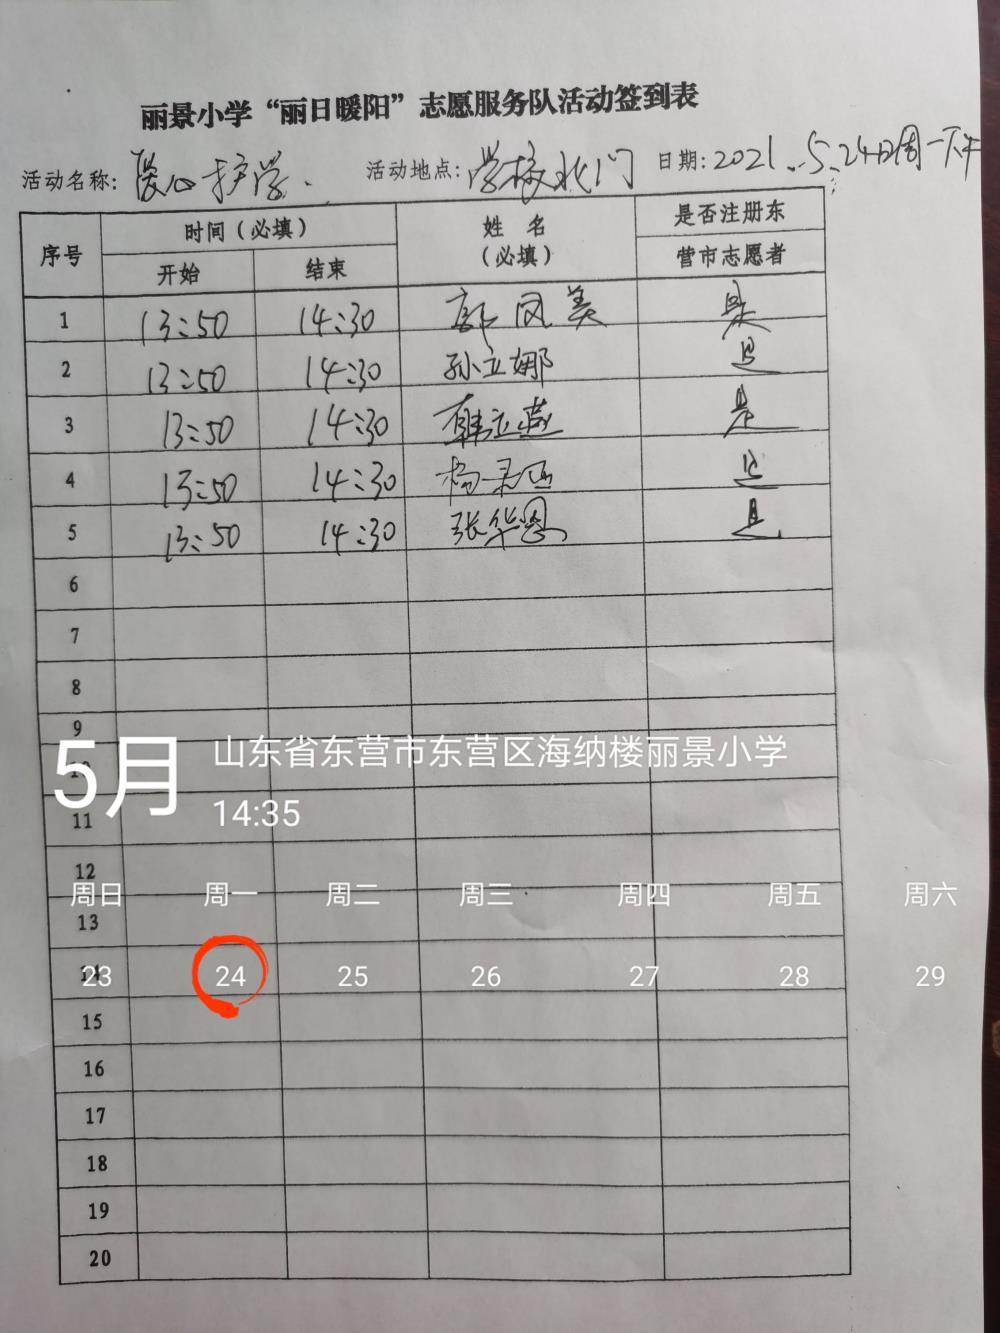 丽景小学“丽日暖阳”志愿服务队活动签到表
活动名称: 爱心护学. 活动地点: 学校北门 日期: 2021.5.24日周一下午
序号 时间（必填） 姓 名（必填） 是否注册东营市志愿者
开始 结束
1 13:50 14:30 郭凤美 是
2 13:50 14:30 孙立娜 是
3 13:50 14:30 韩立燕 是
4 13:50 14:30 杨 是
5 13:50 14:30 张华 是
6
7
8
9
10
5月 山东省东营市东营区海纳楼丽景小学
14:35
11
12
周日 周一 周二 周三 周四 周五 周六
13
14
23 24 25 26 27 28 29
15
16
17
18
19
20